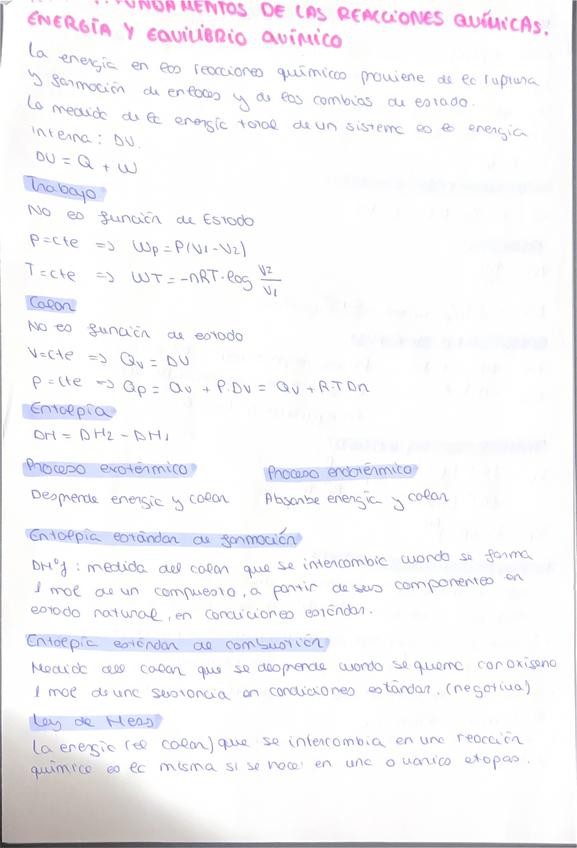 FUNDAMENTOS DE LAS REACCIONES QUÍMICAS.
ENERGÍA Y EQUILIBRIO QUÍMICO
La energía en las reacciones químicas proviene de la ruptura
y formación de enlaces y de los cambios de estado.
La medida de la energía total de un sistema es la energía
interna: DU.
DU = Q + W
Trabajo
No es función de Estado
P=cte => Wp = P(V1-V2)
T=cte => WT = -nRT·log V2/V1
Calor
No es función de estado
V=cte => Qv = DU
P=cte => Qp = Qv + P.DV = Qv + R.T Dn
Entalpía
DH = DH2 - DH1
Proceso exotérmico Proceso endotérmico
Desprende energía y calor Absorbe energía y calor
Entalpía estándar de formación
DH°f : medida del calor que se intercambia cuando se forma
1 mol de un compuesto, a partir de sus componentes en
estado natural, en condiciones estándar.
Entalpía estándar de combustión
Medida del calor que se desprende cuando se quema con oxígeno
1 mol de una sustancia en condiciones estándar. (negativa)
Ley de Hess
La energía (el calor) que se intercambia en una reacción
química es la misma si se hace en una o varias etapas.